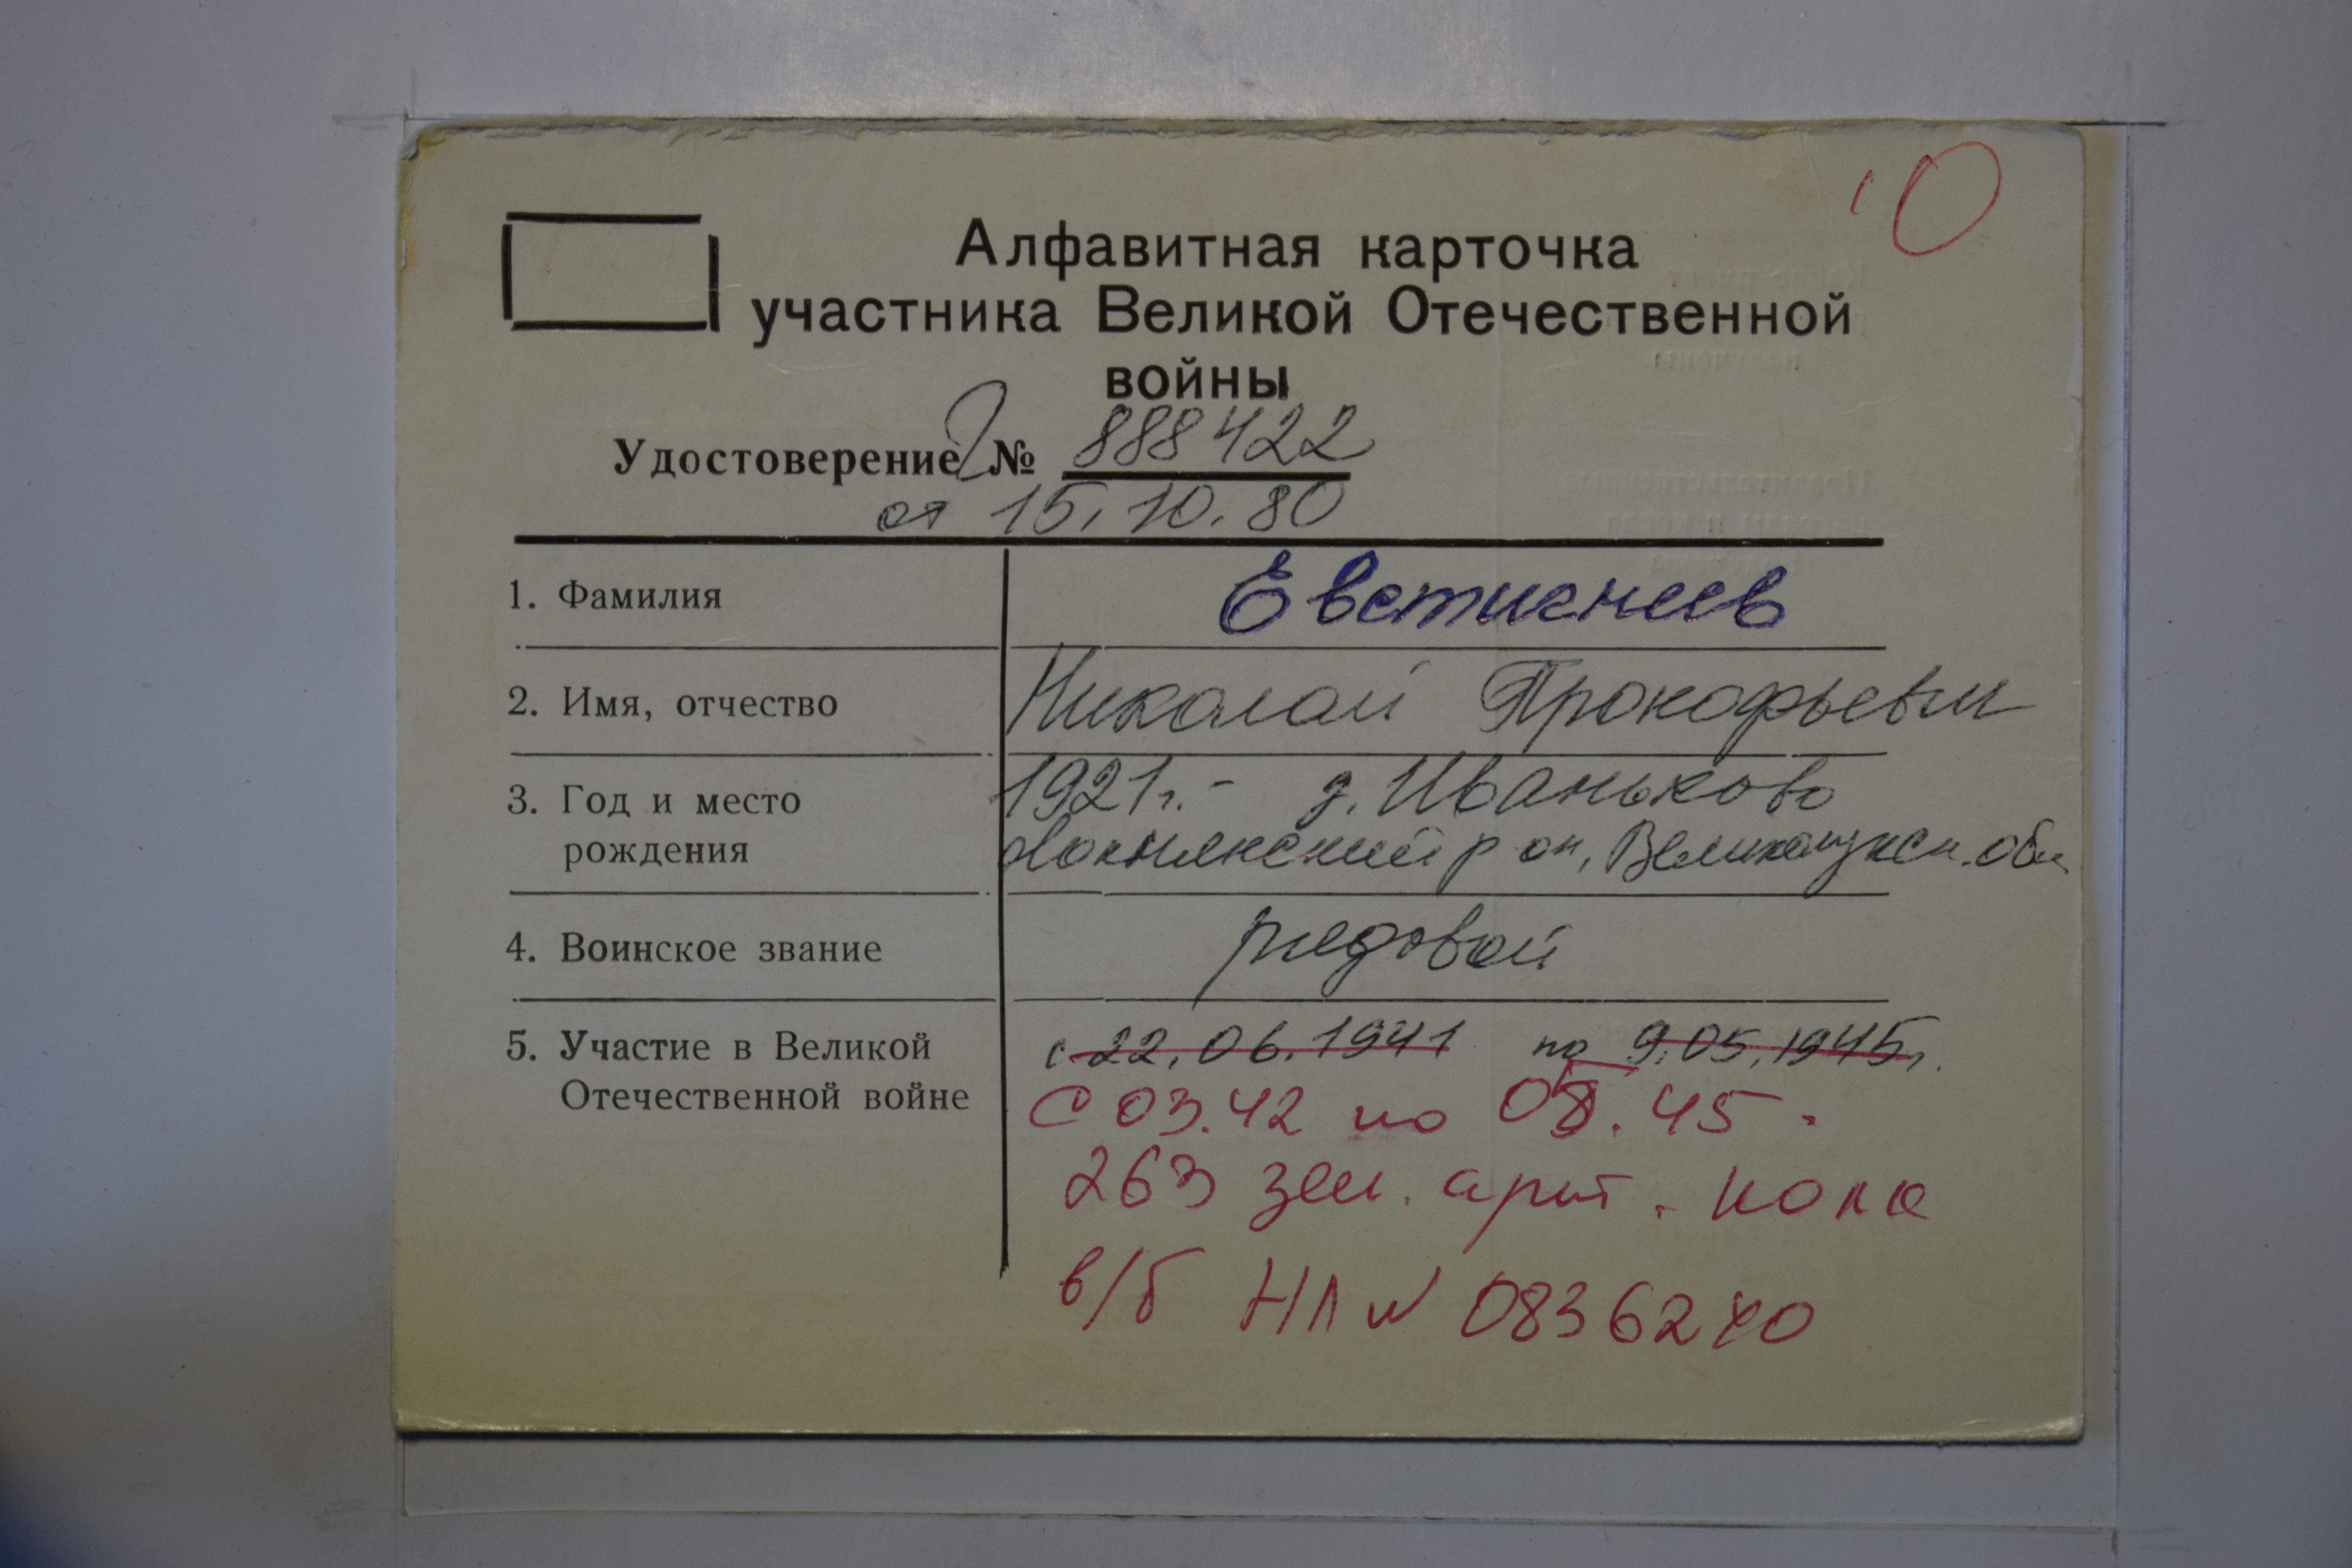 Алфавитная карточка
участника Великой Отечественной
войны
Удостоверение № 888422
от 15.10.80
1. Фамилия Евстигнеев
2. Имя, отчество Николай Прокофьевич
3. Год и место 1921г. - д. Иваньково
рождения Локнянский р он, Великолукск. обл
4. Воинское звание рядовой
5. Участие в Великой с 22.06.1941 по 9.05.1945г.
Отечественной войне С 03.42 по 05.45.
263 зен. арт. полк
в/б НЛ № 0836240